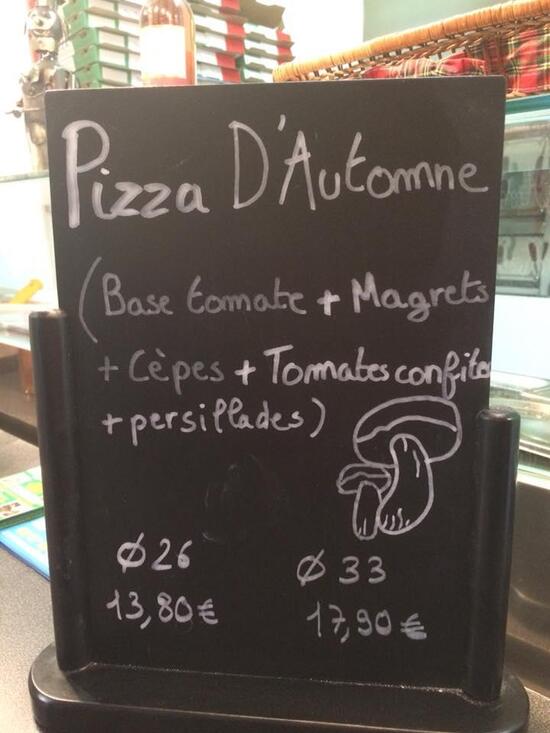 Pizza D'Automne
(Base tomate + Magrets
+ Cèpes + Tomates confites
+ persillades)
Ø 26 Ø 33
13,80€ 17,90€